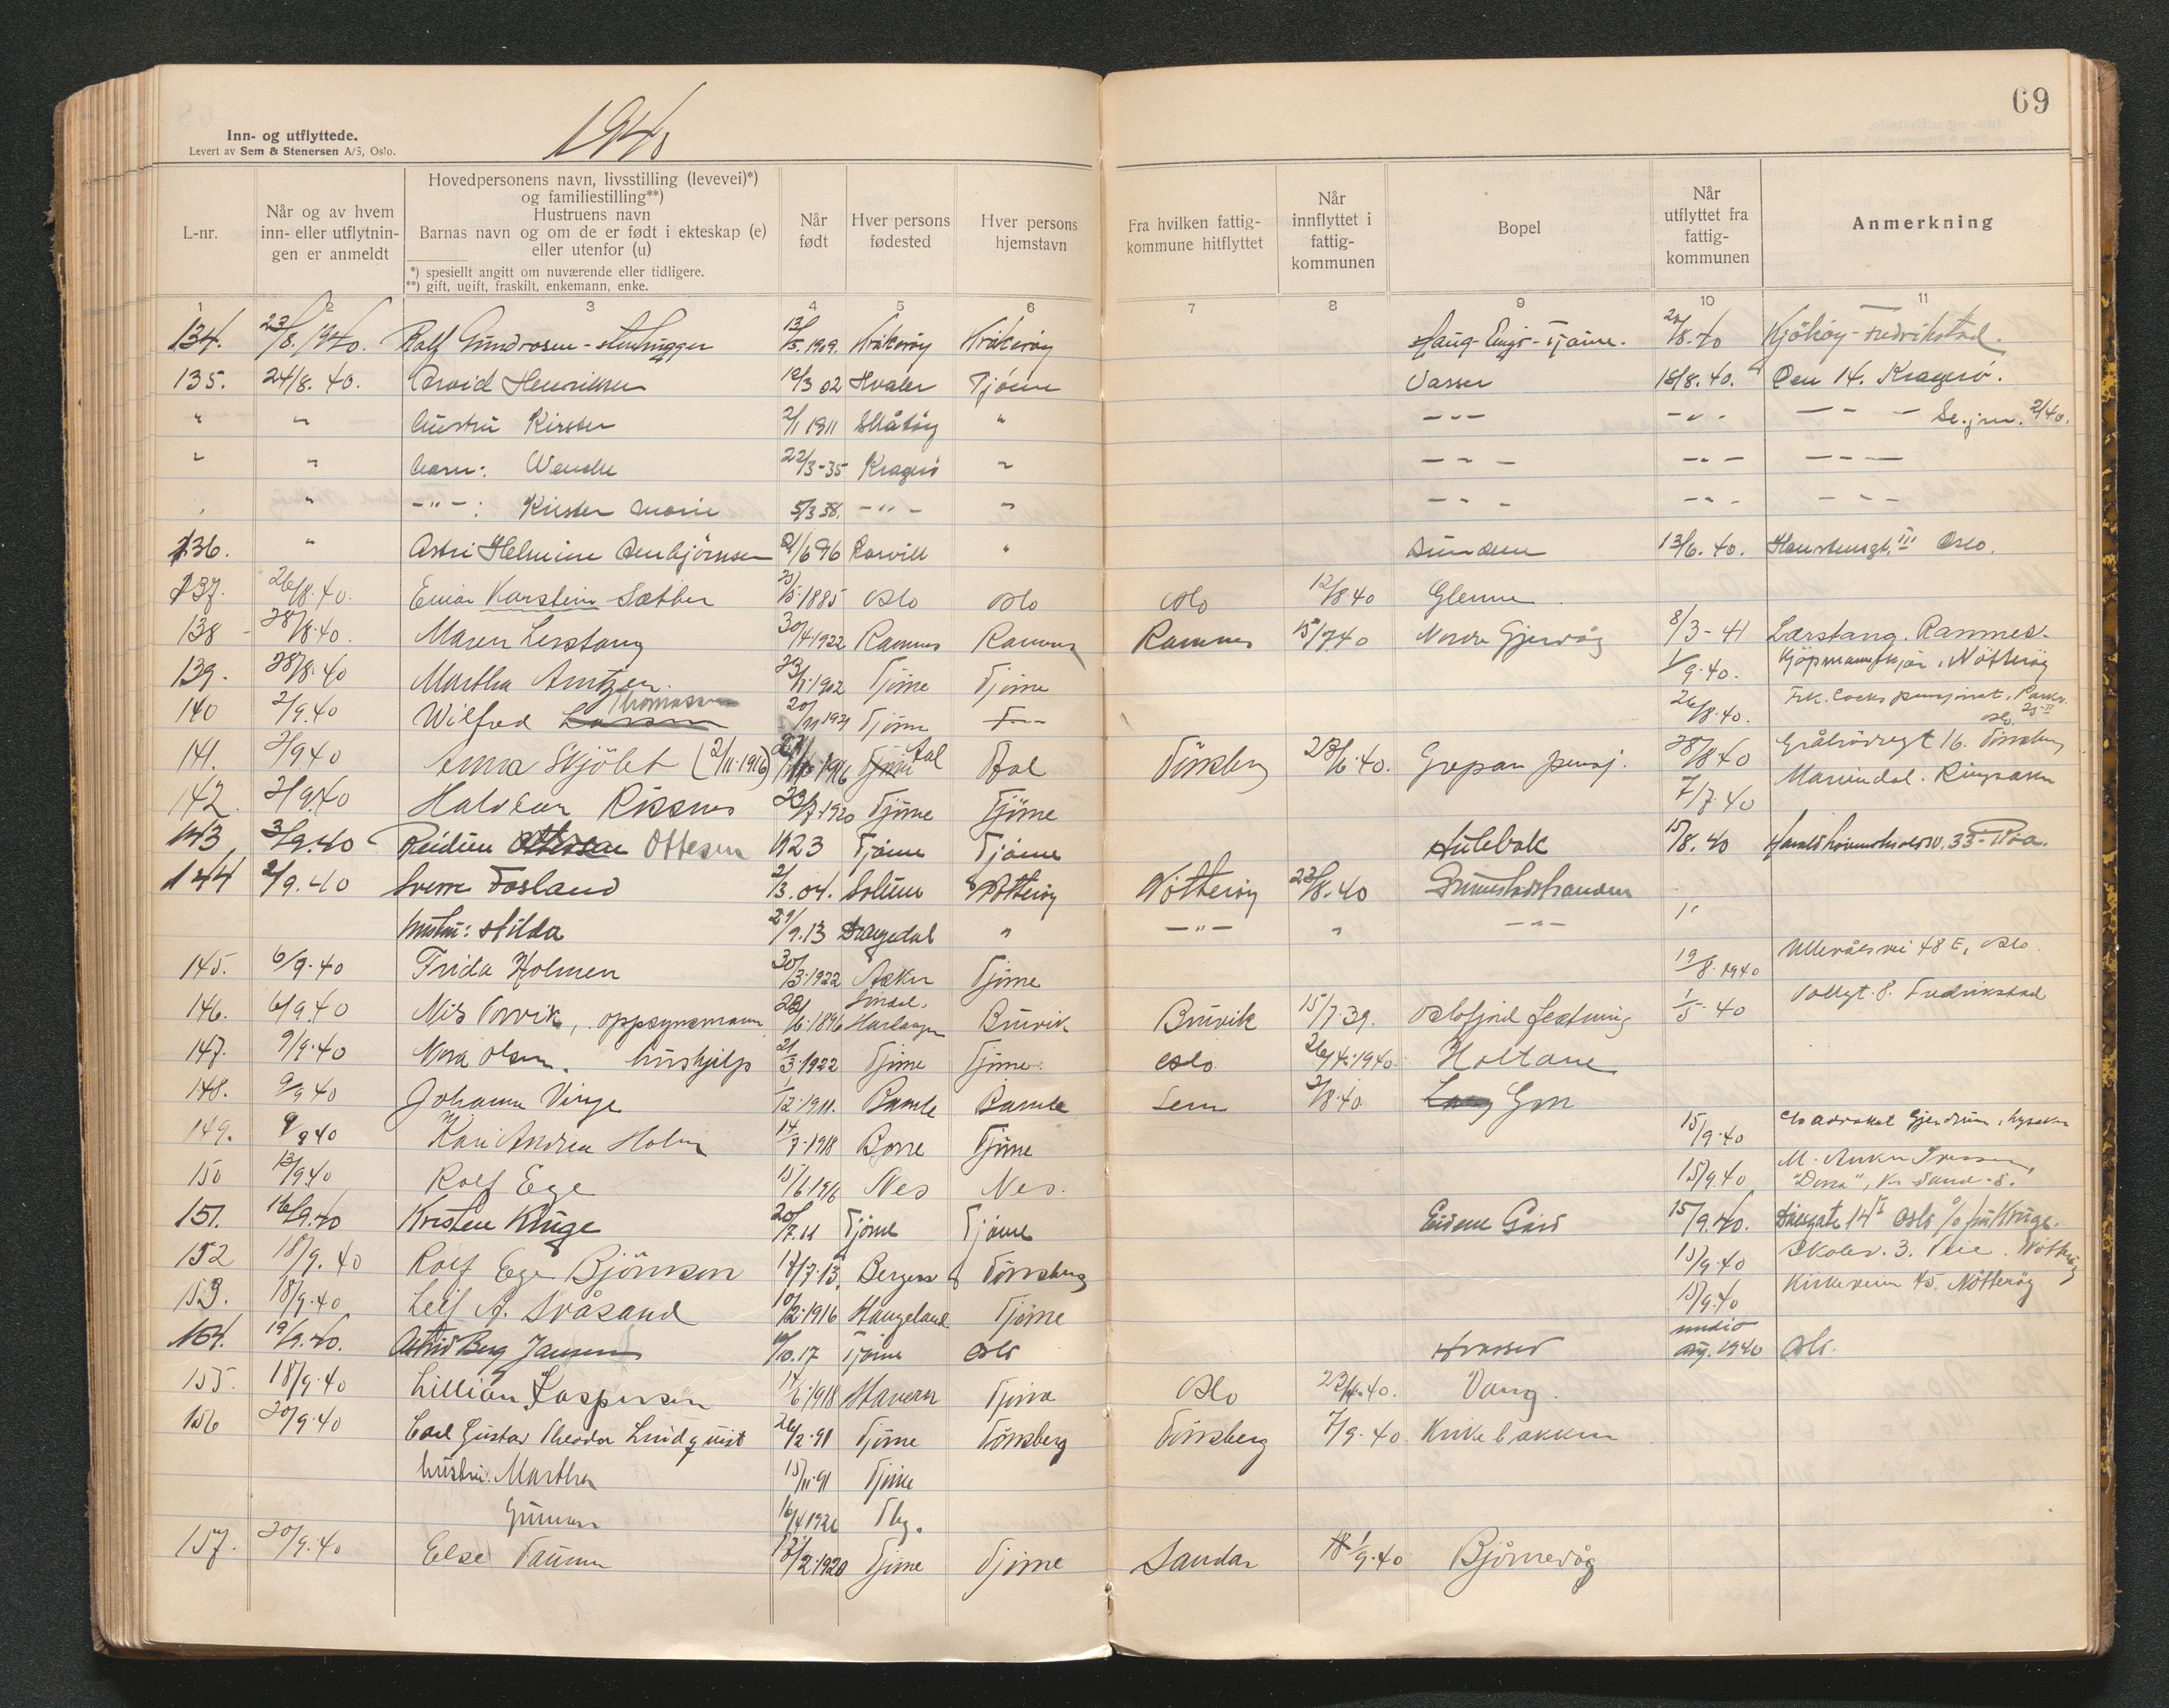 69
Inn- og utflyttede.
Levert av Sem & Stenersen A/S, Oslo.
1940
L-nr.
Når og av hvem inn- eller utflytningen er anmeldt
Hovedpersonens navn, livsstilling (levevei)*) og familiestilling**)
Hustruens navn
Barnas navn og om de er født i ekteskap (e) eller utenfor (u)
*) spesiellt angitt om nuværende eller tidligere.
**) gift, ugift, fraskilt, enkemann, enke.
Når født
Hver persons fødested
Hver persons hjemstavn
Fra hvilken fattigkommune hitflyttet
Når innflyttet i fattigkommunen
Bopel
Når utflyttet fra fattigkommunen
Anmerkning
1 2 3 4 5 6 7 8 9 10 11
134. 23/8. 1940. Rolf Gundrosen - stenhugger 13/5. 1909. Kråkerøy Kråkerøy Haug-Engø-Tjøme. 20/8.40 Kjökøy-Fredrikstad.
135. 24/8. 40. Arvid Henriksen 10/3 02 Hvaler Tjöme Vasser 18/8. 40. Öen 14. Kragerö.
" " hustru Kirsten 2/1 1911 Skåtöy " - " - - " - - " - Se. jnr. 2/40.
" " barn: Wenche 22/3-35 Kragerö " - " - - " - - " -
" - " - : Kirsten Marie 5/3 38. - " - " - " - - " - - " -
136. " Astri Helmine 2/6 96 " Sundene 13/6. 40. III Oslo.
137. 26/8.40. Einar Karstein Sæther 1885 Oslo Oslo Oslo 12/8 40 Glenne
138 28/8.40. Maren Lerstang 30/4.1922 Ramnes Ramnes Ramnes 15/7 40 Nordre Gjervåg 8/3-41 Lærstang. Ramnes.
139. 28/8.40 Martha Arntzen 1902 Tjöme Tjöme 1/9.40. Kjöpmannskjær, Nötteröy
140 2/9.40 Wilfred Larsen Thomassen 20/11 1921 Tjöme T-- 26/8.40. Frk. Cocks pensjonat, Parkv. 25 II Oslo.
141. 2/9 40 Anna Skjölet (2/11.1916) 1916 Tjöme Aal Aal Tönsberg 23/6.40. Gropan pensj. 28/8 40 Gråbrödregt 16. Tönsberg
142. 2/9.40 Halvdan Rissnes 23/7.1920 Tjöme Tjöme 7/7.40 Ringsaker
143 3/9.40 Reidun Ottesen 1923 Tjöme Tjöme Hulebak 15/8.40
144 2/9.40 Sverre Fosland 2/3.04. Solum Nötteröy Nötteröy 23/8.40 Grimestadstranden
hustru: Hilda 29/9.13 Drangedal " - " - " - " - "
145. 6/9.40 Frida Holmen 30/3.1922 Asker Tjöme 19/8.1940 Ullevålsvei 48 E, Oslo.
146. 6/9.40 Nils Torvik, oppsynsmann 1896 Bruvik Bruvik 15/7.39. Oslofjord festning 1/5-40 Vollgt. 8. Fredrikstad
147. 9/9.40 Nora Olsen. hushjelp 21/3.1922 Tjöme Tjöme Oslo 26/4.1940. Holtane
148. 9/9 40 Johanne Vinje 1/12.1911. Bamle Bamle Sem 2/8.40. Gon
149. 9/9 40 Kari Andrea Holm 14/9.1918 Borre Tjöme 15/9.40 c/o advokat Gjerdrum, Lysaker
150 13/9.40 Rolf Ege 15/6.1916 Nes Nes. 15/9.40 M. Anker "Dona", Kr.sand. S.
151. 16/9.40 Kristen Kruge 20/7.11 Tjöme Tjöme Eidene Gård 15/9.40. 14 II Oslo c/o fru Kruge.
152 18/9.40 Rolf Ege Björnson 17/7.13. Bergen Tönsberg 15/9.40 Skolev. 3. Teie. Nötteröy
153. 18/9.40 Leif A. Svåsand 10/2.1916 Haugeland Tjöme 15/9.40 Kirkeveien 45. Nötteröy
154. 19/9.40. Astrid Berg Jansen 10.17 Tjöme Oslo Hvasser medio aug. 1940 Oslo.
155. 18/9.40 Lillian Kaspersen 1918 Stavern Tjöme Oslo 23/4.40. Vang.
156 20/9.40 Carl Gustav Theodor Lindquist 26/2.91 Tjöme Tönsberg Tönsberg 7/9.40 Kirkebakken
hustru. Martha 15/11.91 Tjöme
Gunnar 16/4 1921 Tbg.
157. 20/9.40 Else Taumn 1920 Tjöme Tjöme Sandar 1/9.40 Björnevåg